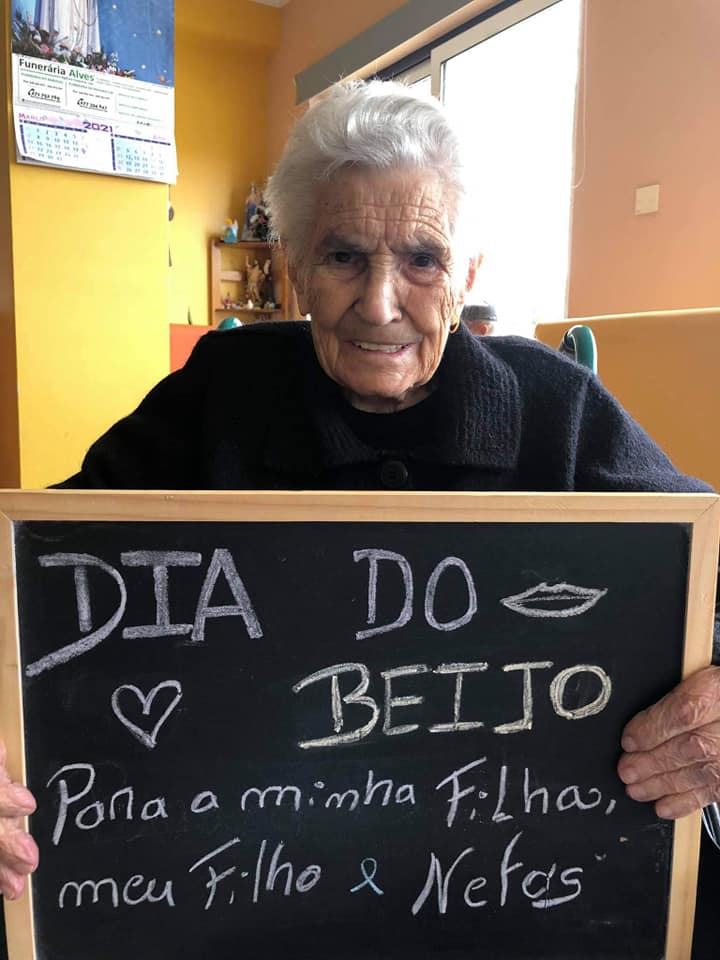 Funerária Alves
MARÇO
2021
DIA DO
BEIJO
Para a minha Filha,
meu Filho & Netos